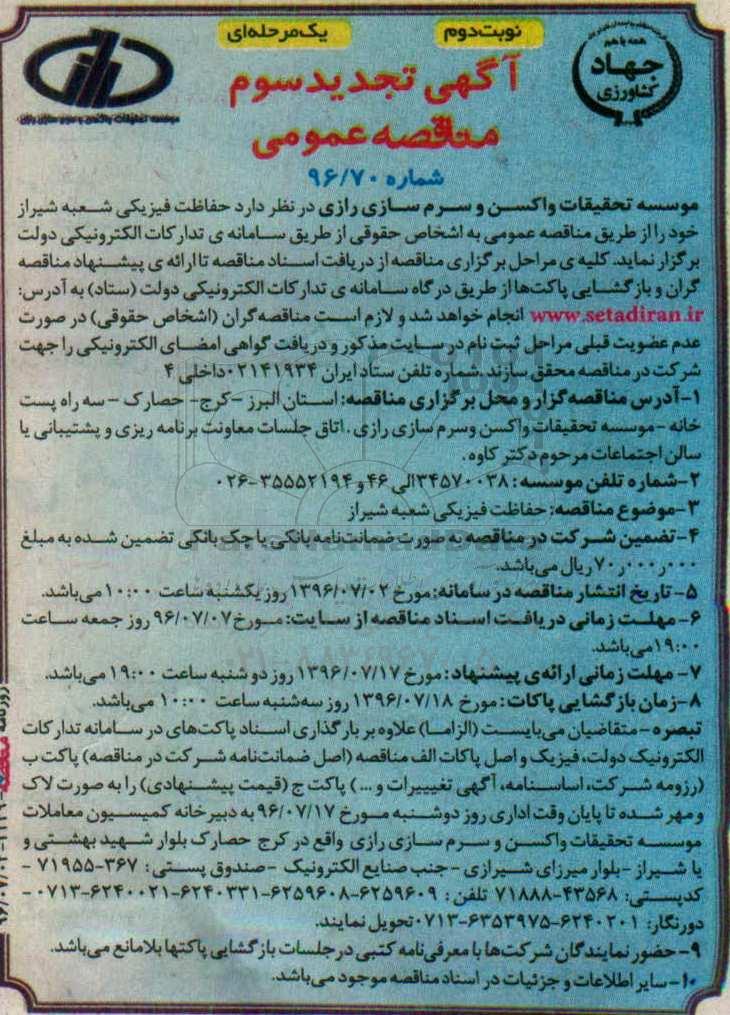 نوبت دوم
یک‌مرحله‌ای
همه با هم
جهاد
کشاورزی
موسسه تحقیقات واکسن و سرم سازی رازی
آگهی تجدید سوم
مناقصه عمومی
شماره ۹۶/۷۰
موسسه تحقیقات واکسن و سرم سازی رازی در نظر دارد حفاظت فیزیکی شعبه شیراز
خود را از طریق مناقصه عمومی به اشخاص حقوقی از طریق سامانه ی تدارکات الکترونیکی دولت
برگزار نماید. کلیه ی مراحل برگزاری مناقصه از دریافت اسناد مناقصه تا ارائه ی پیشنهاد مناقصه
گران و بازگشایی پاکت‌ها از طریق درگاه سامانه ی تدارکات الکترونیکی دولت (ستاد) به آدرس:
www.setadiran.ir انجام خواهد شد و لازم است مناقصه‌گران (اشخاص حقوقی) در صورت
عدم عضویت قبلی مراحل ثبت نام در سایت مذکور و دریافت گواهی امضای الکترونیکی را جهت
شرکت در مناقصه محقق سازند. شماره تلفن ستاد ایران ۰۲۱۴۱۹۳۴ داخلی ۴
۱-آدرس مناقصه‌گزار و محل برگزاری مناقصه: استان البرز –کرج- حصارک – سه راه پست
خانه -موسسه تحقیقات واکسن وسرم سازی رازی . اتاق جلسات معاونت برنامه ریزی و پشتیبانی یا
سالن اجتماعات مرحوم دکتر کاوه .
۲-شماره تلفن موسسه : ۳۴۵۷۰۰۳۸الی ۴۶ و ۳۵۵۵۲۱۹۴-۰۲۶
۳-موضوع مناقصه: حفاظت فیزیکی شعبه شیراز
۴-تضمین شرکت در مناقصه به صورت ضمانت‌نامه بانکی یا چک بانکی تضمین شده به مبلغ
۷۰٫۰۰۰٫۰۰۰ ریال می‌باشد.
۵- تاریخ انتشار مناقصه در سامانه: مورخ ۱۳۹۶/۰۷/۰۲ روز یکشنبه ساعت ۱۰:۰۰ می‌باشد.
۶-مهلت زمانی دریافت اسناد مناقصه از سایت: مورخ ۹۶/۰۷/۰۷ روز جمعه ساعت
۱۹:۰۰ می‌باشد.
۷- مهلت زمانی ارائه‌ی پیشنهاد: مورخ ۱۳۹۶/۰۷/۱۷ روز دو شنبه ساعت ۱۹:۰۰ می‌باشد.
۸-زمان بازگشایی پاکات: مورخ ۱۳۹۶/۰۷/۱۸ روز سه‌شنبه ساعت ۱۰:۰۰ می‌باشد.
تبصره – متقاضیان می‌بایست (الزاما) علاوه بر بارگذاری اسناد پاکت‌های در سامانه تدارکات
الکترونیک دولت، فیزیک و اصل پاکات الف مناقصه (اصل ضمانت‌نامه شرکت در مناقصه) پاکت ب
(رزومه شرکت، اساسنامه، آگهی تغییرات و ...) پاکت ج (قیمت پیشنهادی) را به صورت لاک
و مهر شده تا پایان وقت اداری روز دوشنبه مورخ ۹۶/۰۷/۱۷ به دبیرخانه کمیسیون معاملات
موسسه تحقیقات واکسن و سرم سازی رازی واقع در کرج حصارک بلوار شهید بهشتی و
یا شیراز -بلوار میرزای شیرازی -جنب صنایع الکترونیک -صندوق پستی: ۳۶۷-۷۱۹۵۵ -
کدپستی: ۴۳۵۶۸-۷۱۸۸۸ تلفن : ۶۲۵۹۶۰۹-۶۲۵۹۶۰۸-۶۲۴۰۳۳۱-۶۲۴۰۰۲۱-۰۷۱۳ -
دورنگار: ۶۲۴۰۲۰۱-۶۳۵۳۹۷۵-۰۷۱۳ تحویل نمایند.
۹-حضور نمایندگان شرکت‌ها با معرفی‌نامه کتبی در جلسات بازگشایی پاکتها بلامانع می‌باشد.
۱۰-سایر اطلاعات و جزئیات در اسناد مناقصه موجود می‌باشد.